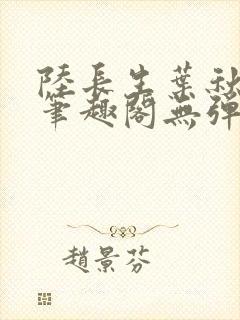 陸長生葉秋
筆趣閣無彈
趙景芬